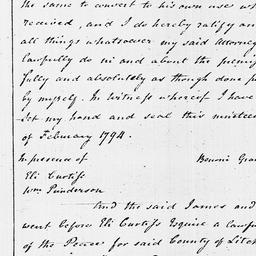 the same to convert to his own use wh
received, and I do hereby ratify and
all things whatsoever my said Attorney
Lawfully do in and about the premis
fully and absolutely as though done p
by myself. In Witness whereof I have
Set my hand and seal this nineteen
of February 1794.
In presence of Benoni Gra
Eli Curtiss
Wm Punderson
And the said James and
went before Eli Curtiss Esquire a Lawfu
of the Peace for said County of Litch